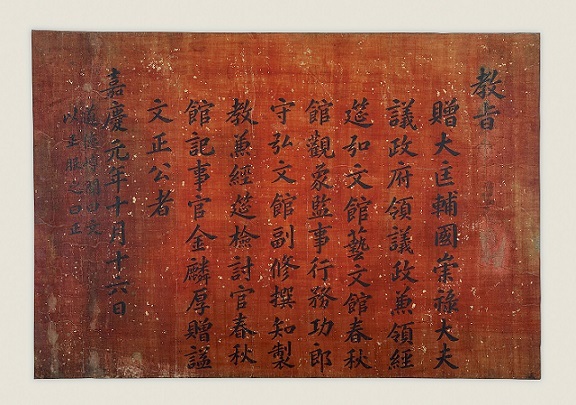 教旨
贈大匡輔國崇祿大夫
議政府領議政兼領經
筵弘文館藝文館春秋
館觀象監事行務功郎
守弘文館副修撰知製
教兼經筵檢討官春秋
館記事官金麟厚贈謚
文正公者
嘉慶元年十月十六日
道德博聞曰文
以正服之曰正